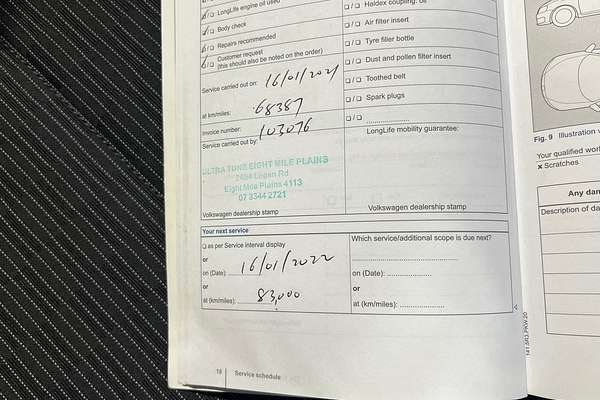 ☐/☐ LongLife engine oil used
☐/☐ Body check
☐/☐ Repairs recommended
☐/☐ Customer request
(this should also be noted on the order)
Service carried out on: 16/01/2021
at km/miles: 68387
Invoice number: 103076
Service carried out by:
ULTRA TUNE EIGHT MILE PLAINS
2464 Logan Rd
Eight Mile Plains 4113
07 3344 2721
Volkswagen dealership stamp
☐/☐ Haldex coupling: oil
☐/☐ Air filter insert
☐/☐ Tyre filler bottle
☐/☐ Dust and pollen filter insert
☐/☐ Toothed belt
☐/☐ Spark plugs
☐/☐ ....................
LongLife mobility guarantee:
Volkswagen dealership stamp
Your next service
☐ as per Service interval display
or
on (Date): 16/01/2022
or
at (km/miles): 83,000
Which service/additional scope is due next?
on (Date): ....................
or
at (km/miles): ....................
18 Service schedule
Fig. 9 Illustration
Your qualified
× Scratches
Any
Description of